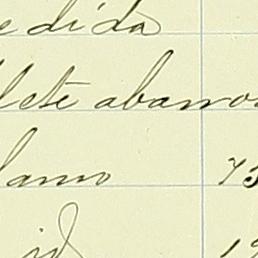 edida
lete abarro
lamo 73
id 12